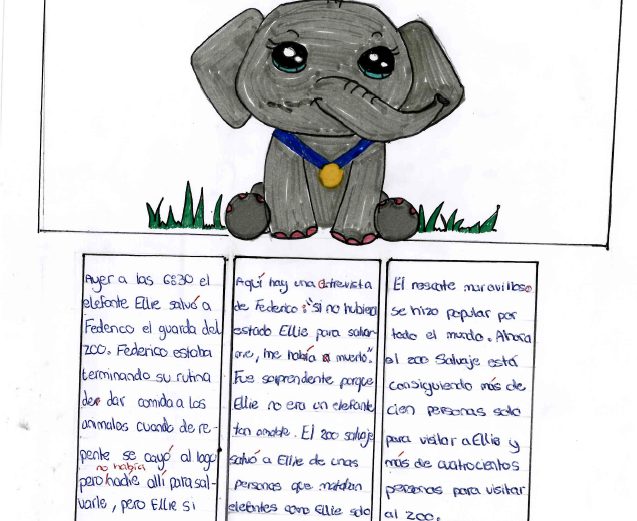 Ayer a las 6:30 el
elefante Ellie salvó a
Federico el guarda del
zoo. Federico estaba
terminando su rutina
de dar comida a los
animales cuando de re-
pente se cayó al lago
no había
pero nadie allí para sal-
varle, pero Ellie si
Aquí hay una entrevista
de Federico: "si no hubiera
estado Ellie para salvar
me, me había muerto".
Fue sorprendente porque
Ellie no era un elefante
tan amable. El zoo salvaje
salvó a Ellie de unas
personas que matan
elefantes como Ellie solo
El rescate maravilloso
se hizo popular por
todo el mundo. Ahora
el zoo Salvaje está
consiguiendo más de
cien personas solo
para visitar a Ellie y
más de cuatrocientos
personas para visitar
al zoo.